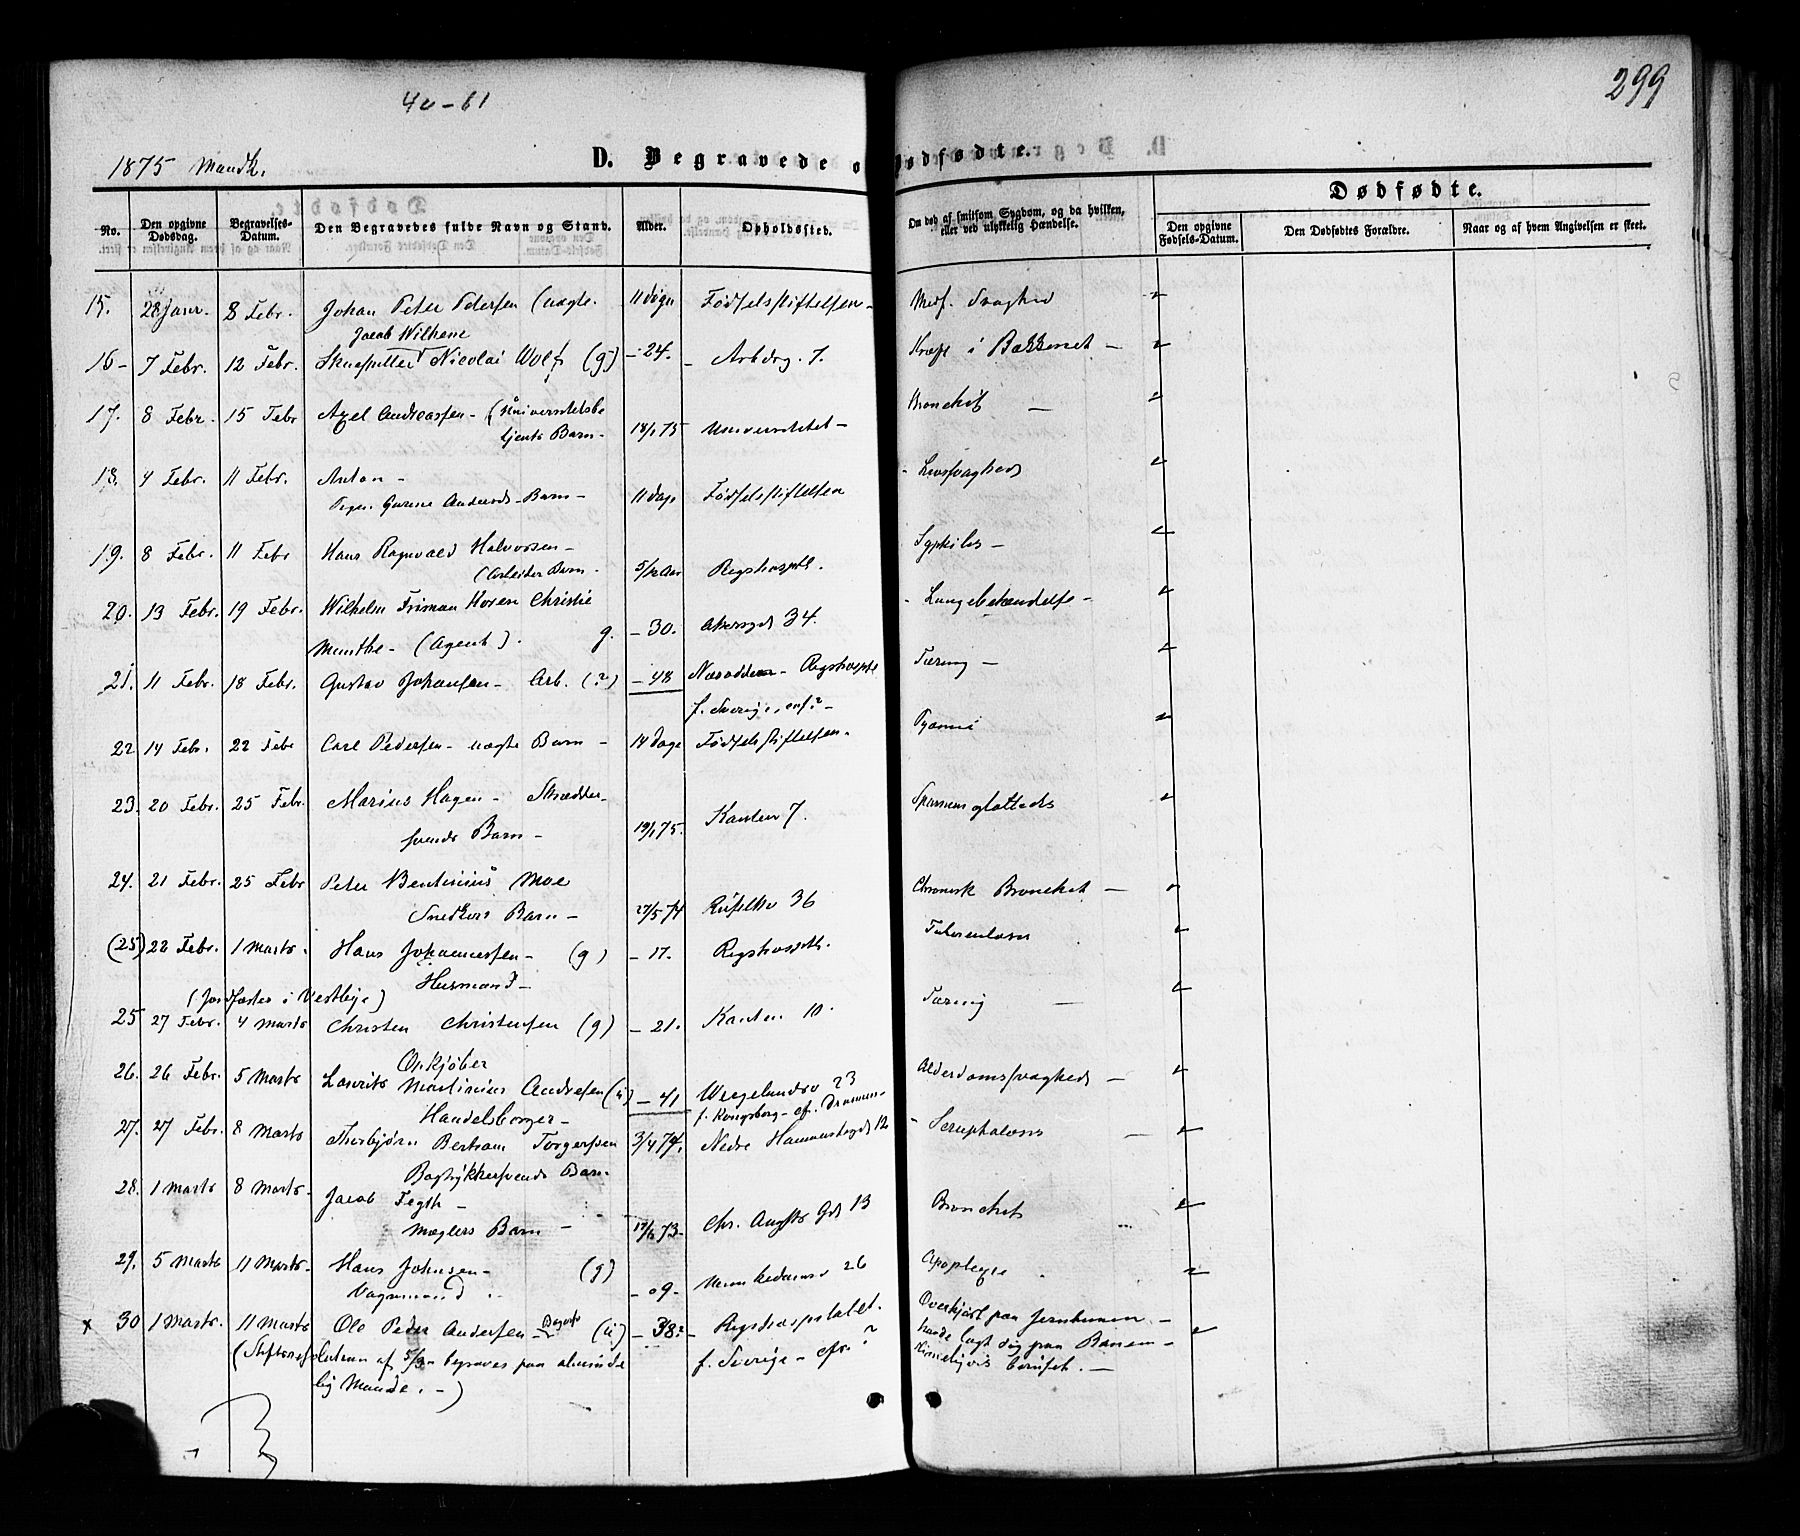 299
40-61
1875 Mandk.
D. Begravede o
Dødfødte.
Dødfødte.
No.
Den opgivne Dødsdag.
Begravelses-Datum.
Den Begravedes fulde Navn og Stand.
Alder.
Opholdssted.
Om død af smitsom Sygdom, og da hvilken, eller ved ulykkelig Hændelse.
Den opgivne Fødsels-Datum.
Den Dødfødtes Forældre.
Naar og af hvem Angivelsen er skeet.
15. 28 Janr. 8 Febr. Johan Peter Pedersen (uægte. 11 døgn Fødselsstiftelsen - Medf. Svaghed
Jacob Wilhelm
16- 7 Febr. 12 Febr. Skuespiller Nicolai Wolf (g) -24. - Arbdrg. 7. Kræft i Bækkenet -
17. 8 Febr. 15 Febr Axel Andreassen - (Universitetsbe Bronchit -
tjents Barn - 18/1 75 Universitetet -
18. 4 Febr. 11 Febr. Anton - - Livssvaghed
Pigen Gurine Anderds - Barn - 11 dage Fødselsstiftelsen
19. 8 Febr. 11 Febr Hans Ragnvald Halvorsen - Syphilis -
(Arbeider Barn - 5/12 Aar Rigshospit.
20. 13 Febr. 19 Febr. Wilhelm Friman Koren Christie - Lungebetændelse -
Munthe - (Agent). g. - 30. Akersgd 34.
21. 11 Febr. 18 Febr. Gustav Johansen - Arb. (?) - 48 Næsodden - Rigshospit Tæring -
f. Sverige, conf? -
22 14 Febr. 22 Febr Carl Pedersen - uægte Barn - 14 dage Fødselsstiftelsen. Pyæmi
23. 20 Febr. 25 Febr. Marius Hagen - Skrædder- Spasmus glottidis
svends Barn - 19/1 75. Kanten 7.
24. 21 Febr. 25 Febr Peter Bentinius Moe Chronisk Bronchit -
Snedkers Barn - 27/5 74 36
(25) 22 Febr. 1 Marts. Hans Johannessen - (g) - 17. Rigshospit. Tuberculose
Husmand -
(Jordfæstes i Vestby)
25 27 Febr. 4 Marts Christen Christensen (g) - 21. Kanten 10. Tæring -
Opkjøber
26. 26 Febr. 5 Marts Laurits Martinius Andresen (u) - 41 Wergelandsv 23 Alderdomssvaghed -
Handelsborger - f. Kongsberg - cf. Drammen -
27. 27 Febr. 8 Marts Thorbjørn Bertram Torgersen 3/4 74. Nedre Hammersbgd 12 - Scrophulose -
Bogtrykkersvends Barn -
28. 1 Marts 8 Marts. Jacob Fegth - Bronchit
Mæglers Barn - Chr. Augsts Gd 13
29. 5 Marts 11 Marts. Hans Johnsen - (g) - 09 - Munkedamsv 26 Apoplexie
Vognmand
x 30 1 Marts. 11 Marts Ole Peder Andersen - Bagersv (u) - 38? - Rigshospitalet. Overkjørt paa Jernbanen -
(Stiftsresolution af 5/3 begraves paa alminde f. Sverige - cfr.? havde lagt sig paa Banen -
lig Maade. -) rimeligvis beruset. -